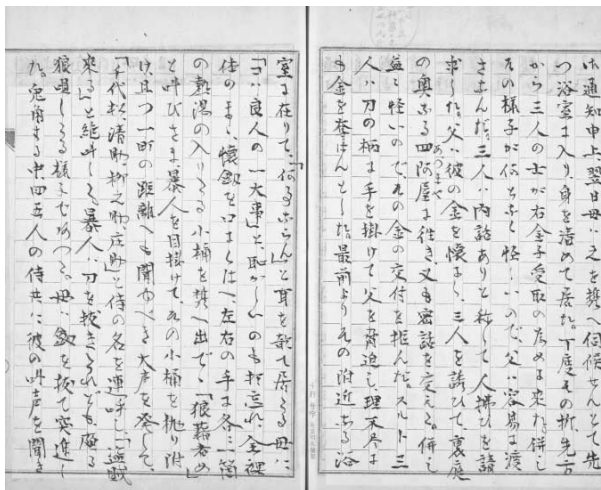 け通知申上、翌日母ハ之を携へ伺候せんとて先
つ浴室ニ入り身を浩めて居た。丁度その折、先方
から三人の士が右金子受取の為めニ来た。併し
その様子が何となく怪しいので、父ハ容易ニ渡
さなんだ。三人ハ内話ありと称して人拂ひを請
求した。父ハ彼の金を懐ニし、三人を誘ひて、裏庭
の奥なる四阿屋ニ往き又も密話を交える。併し
益々怪いので、その金の交付を拒んだ。スルト三
人ハ刀の柄ニ手を掛けて父を脅迫し、理不尽ニ
も金を奪はんとした。最前よりその附近なる浴
室ニ在りて、「何事ならん」と耳を欹て居たる母ハ
「すハ良人の一大事」と、恥かしいのも打忘れ、全裸
体のまゝ、懐劔を口にくはへ、左右の手ニ各々一箇
の熱湯の入りたる小桶を携へ出で、「狼藉者め」
と呼びさま暴人を目掛けて、その小桶を抛り附
け、且つ一町の距離へも聞ゆべき大声を発して、
「千代松、清助、柳之助、庄助」と侍の名を連呼し「盗賊
来る」と絶叫した。暴人ハ刀を抜きたれども頗る
狼狽したる様子であつた。母ハ劔を抜て突進し
た。兎角する中四五人の侍共ニ彼の叫声を聞き